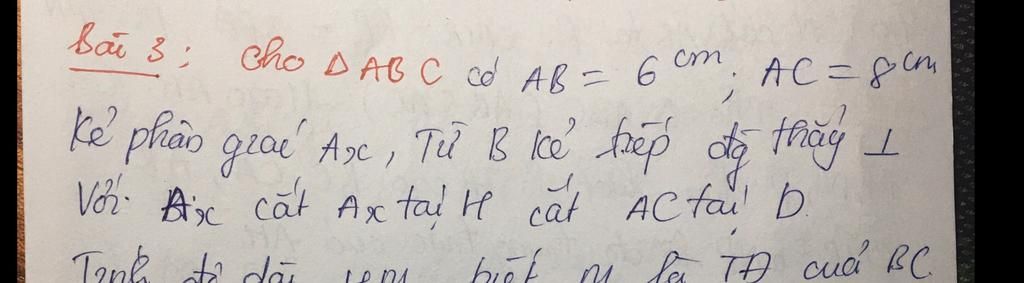 Bài 3: Cho Δ ABC có AB = 6 cm; AC = 8 cm
Kẻ phân giác Ax, Từ B kẻ tiếp đg thẳg ⊥
Với Ax cắt Ax tại H cắt AC tại D.
Tính độ dài biết M là TĐ của BC.